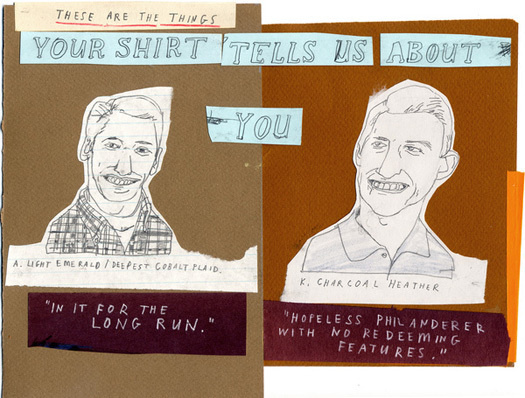 THESE ARE THE THINGS
YOUR SHIRT TELLS US ABOUT
YOU
A. LIGHT EMERALD / DEEPEST COBALT PLAID.
"IN IT FOR THE
LONG RUN."
K. CHARCOAL HEATHER
"HOPELESS PHILANDERER
WITH NO REDEEMING
FEATURES."